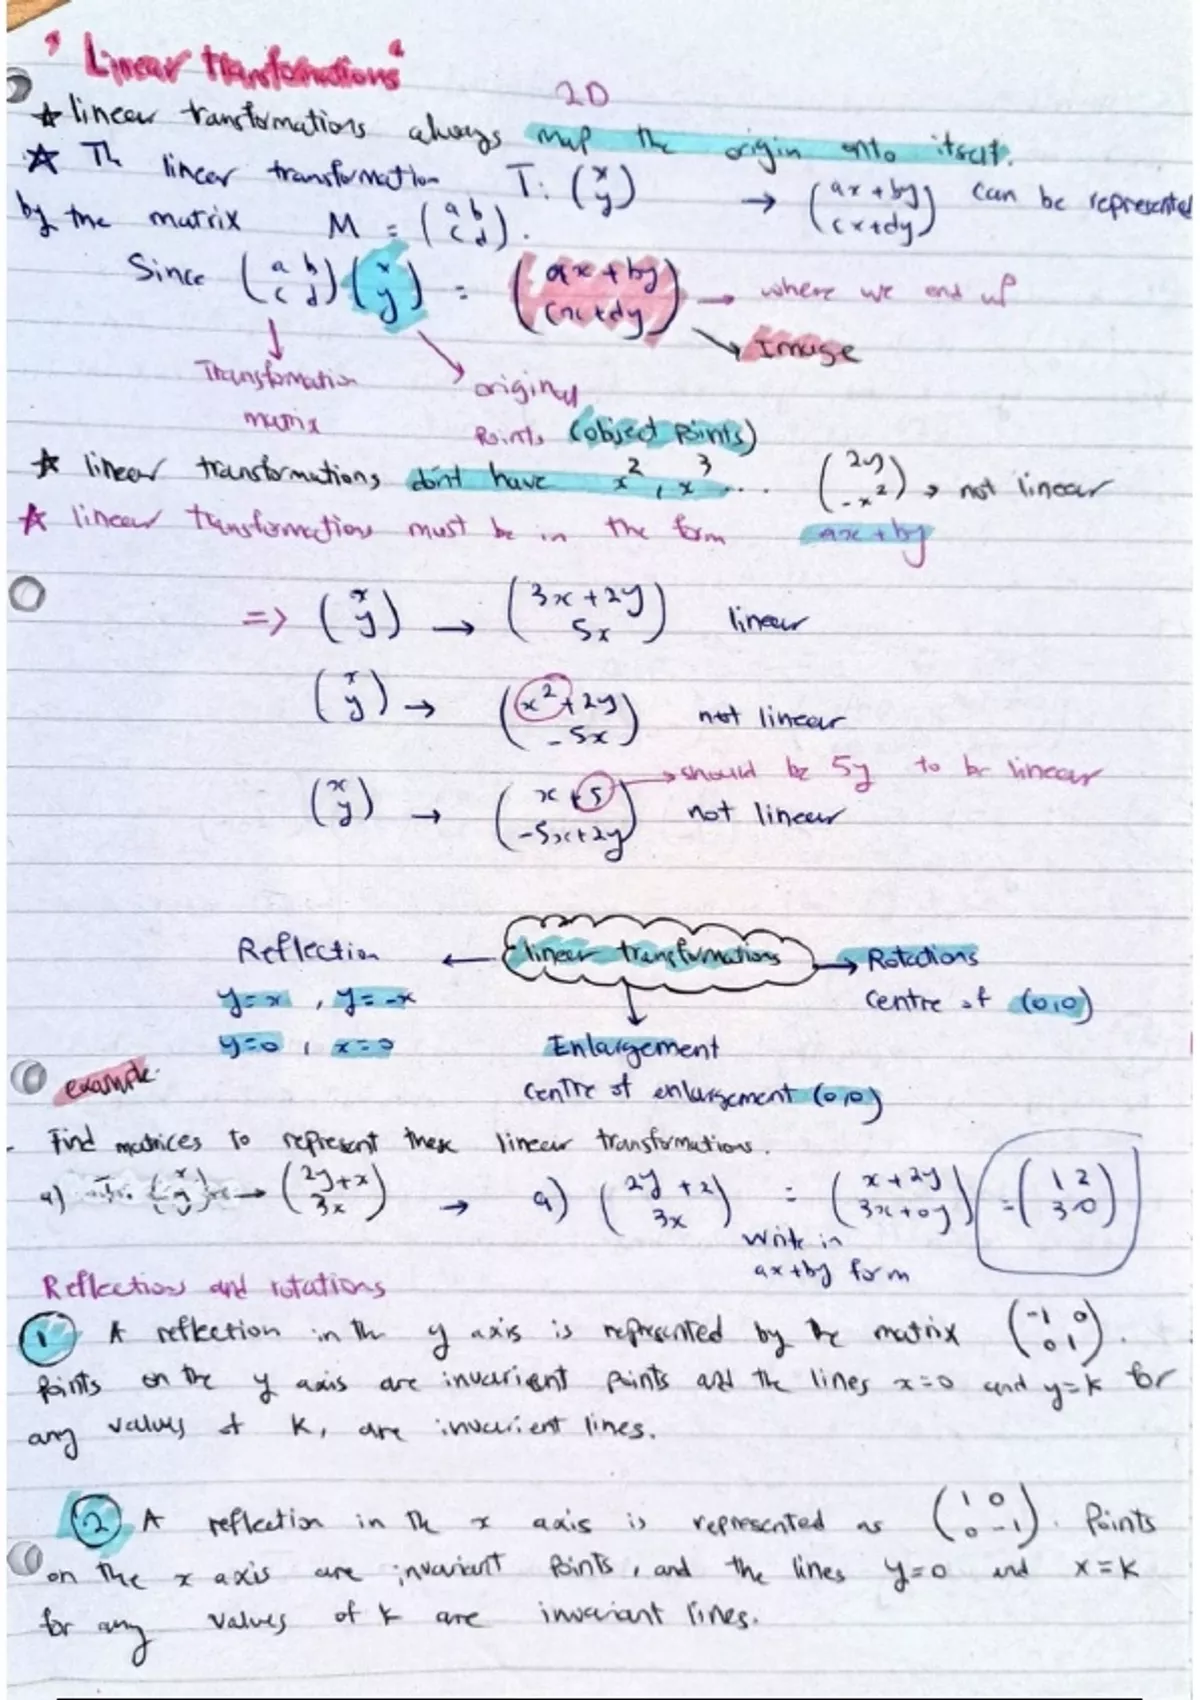 " Linear transformations "
2D
☆ linear transformations always map the origin onto itself.
☆ Th linear transformation T: (x y) → (ax + by cx+dy) can be represented
by the matrix M = (a b c d).
Since (a b c d) (x y) = (ax + by cx + dy) → where we end up
Image
Transformation matrix
original points (object points)
☆ linear transformations don't have x², x³ ... (2y -x²) → not linear
☆ linear transformations must be in the form ax + by
=> (x y) → (3x + 2y 5x) linear
(x y) → (x² + 2y -5x) not linear
→ should be 5y to be linear
(x y) → (x + 5 -5x+2y) not linear
Reflection ← linear transformations → Rotations
y=x , y=-x
Centre of (0,0)
y=0 , x=0
Enlargement
centre of enlargement (0,0)
example.
- Find matrices to represent these linear transformations.
a) T: (x y) → (2y+x 3x) → a) (2y + x 3x) = (x + 2y 3x + 0y) = (1 2 3 0)
write in
ax+by form
Reflections and rotations
1 A reflection in the y axis is represented by the matrix (-1 0 0 1).
Points on the y axis are invariant points and the lines x=0 and y=k for
any values of k, are invarient lines.
2 A reflection in the x axis is represented as (1 0 0 -1). Points
on the x axis are invariant points, and the lines y=0 and x=k
for any values of k are invariant lines.